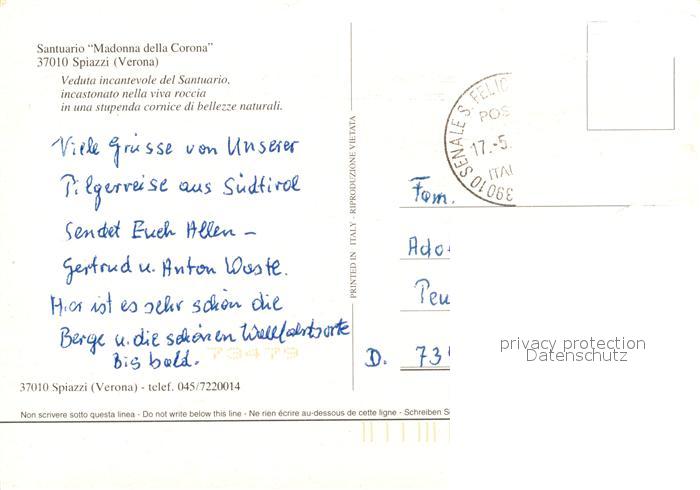 Santuario “Madonna della Corona”
37010 Spiazzi (Verona)
Veduta incantevole del Santuario,
incastonato nella viva roccia
in una stupenda cornice di bellezze naturali.
Viele Grüsse von Unserer
Pilgerreise aus Südtirol
Sendet Euch Allen –
Gertrud u. Anton Waste.
Hier ist es sehr schön die
Berge u. die schönen Wallfahrtsorte
Bis bald.
73479
37010 Spiazzi (Verona) - telef. 045/7220014
Non scrivere sotto questa linea - Do not write below this line - Ne rien écrire au-dessous de cette ligne - Schreiben S
PRINTED IN ITALY - RIPRODUZIONE VIETATA
39010 SENALE S. FELIC
POS
17.-5.
ITAL
Fam.
Ado
Peu
D. 73
privacy protection
Datenschutz